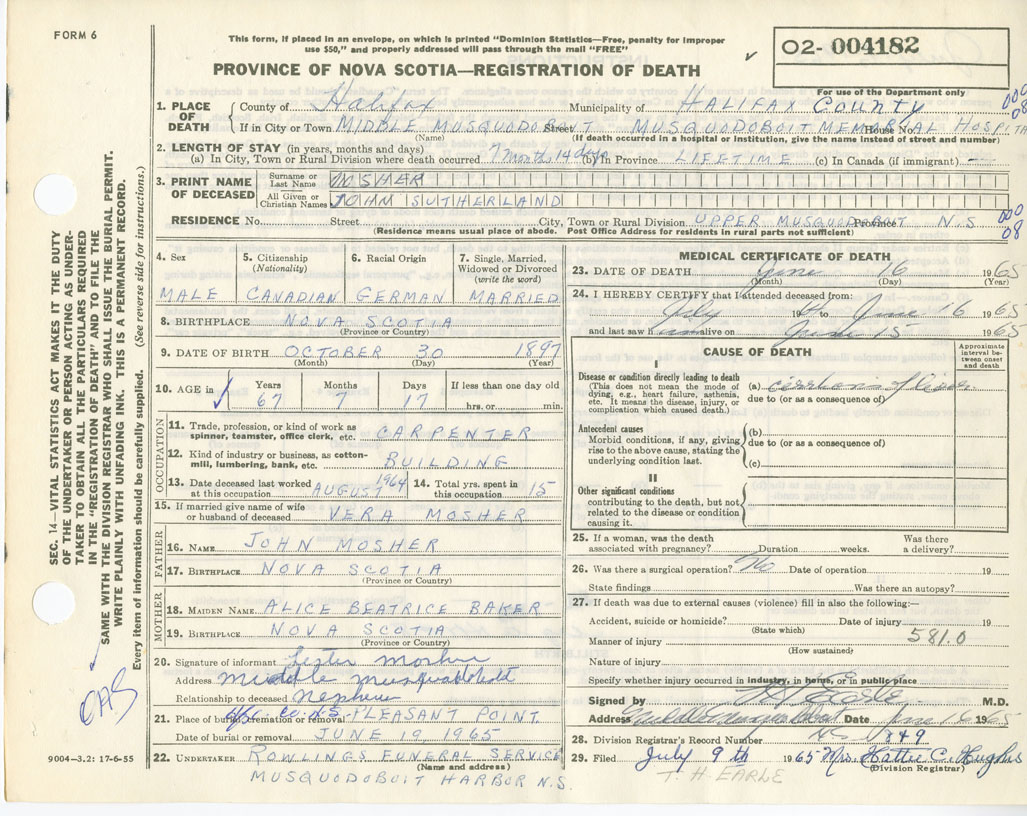 FORM 6
This form, if placed in an envelope, on which is printed "Dominion Statistics—Free, penalty for improper
use $50," and properly addressed will pass through the mail "FREE"
02- 004182
PROVINCE OF NOVA SCOTIA—REGISTRATION OF DEATH
For use of the Department only
1. PLACE OF DEATH County of Halifax Municipality of HALIFAX County
If in City or Town MIDDLE MUSQUODOBOIT Street MUSQUODOBOIT MEMORIAL HOSPITAL House No.
(Name) (If death occurred in a hospital or institution, give the name instead of street and number)
2. LENGTH OF STAY (in years, months and days)
(a) In City, Town or Rural Division where death occurred 7 months 14 days (b) In Province LIFETIME (c) In Canada (if immigrant) —
3. PRINT NAME OF DECEASED Surname or Last Name MOSHER
All Given or Christian Names JOHN SUTHERLAND
RESIDENCE No. Street City, Town or Rural Division UPPER MUSQUODOBOIT Province N.S
(Residence means usual place of abode. Post Office Address for residents in rural parts not sufficient)
000
08
4. Sex 5. Citizenship (Nationality) 6. Racial Origin 7. Single, Married, Widowed or Divorced (write the word)
MALE CANADIAN GERMAN MARRIED
8. BIRTHPLACE NOVA SCOTIA
(Province or Country)
9. DATE OF BIRTH OCTOBER 30 1897
(Month) (Day) (Year)
10. AGE in Years Months Days If less than one day old
67 7 17 hrs. or min.
OCCUPATION
11. Trade, profession, or kind of work as spinner, teamster, office clerk, etc. CARPENTER
12. Kind of industry or business, as cotton-mill, lumbering, bank, etc. BUILDING
13. Date deceased last worked at this occupation AUGUST 1964 14. Total yrs. spent in this occupation 15
15. If married give name of wife or husband of deceased VERA MOSHER
FATHER
16. NAME JOHN MOSHER
17. BIRTHPLACE NOVA SCOTIA
(Province or Country)
MOTHER
18. MAIDEN NAME ALICE BEATRICE BAKER
19. BIRTHPLACE NOVA SCOTIA
(Province or Country)
20. Signature of informant Lester Mosher
Address Middle Musquodoboit
Relationship to deceased Nephew
21. Place of burial, cremation or removal Hfx. Co. N.S. PLEASANT POINT
Date of burial or removal JUNE 19, 1965
22. UNDERTAKER ROWLINGS FUNERAL SERVICE
(Name and address)
MUSQUODOBOIT HARBOR N.S.
9004—3.2: 17-6-55
MEDICAL CERTIFICATE OF DEATH
23. DATE OF DEATH June 16 1965
(Month) (Day) (Year)
24. I HEREBY CERTIFY that I attended deceased from:
July 19 to June 16 1965
and last saw him alive on June 15 1965
CAUSE OF DEATH
Approximate interval between onset and death
I
Disease or condition directly leading to death
(This does not mean the mode of dying, e.g., heart failure, asthenia, etc. It means the disease, injury, or complication which caused death.)
(a) cirrhosis of liver
due to (or as a consequence of)
Antecedent causes
Morbid conditions, if any, giving rise to the above cause, stating the underlying condition last.
(b)
due to (or as a consequence of)
(c)
II
Other significant conditions
contributing to the death, but not related to the disease or condition causing it.
25. If a woman, was the death associated with pregnancy? Duration weeks. Was there a delivery?
26. Was there a surgical operation? No Date of operation 19
State findings Was there an autopsy?
27. If death was due to external causes (violence) fill in also the following:—
Accident, suicide or homicide? Date of injury 19
(State which)
Manner of injury 581.0
(How sustained)
Nature of injury
Specify whether injury occurred in industry, in home, or in public place
Signed by T H Earle M.D.
Address Middle Musquodoboit Date June 16 1965
N.S.
28. Division Registrar's Record Number 849
29. Filed July 9th 1965 Mrs. Hattie C. Hughes
(Division Registrar)
T. H. EARLE
SEC. 14—VITAL STATISTICS ACT MAKES IT THE DUTY
OF THE UNDERTAKER OR PERSON ACTING AS UNDER-
TAKER TO OBTAIN ALL THE PARTICULARS REQUIRED
IN THE "REGISTRATION OF DEATH" AND TO FILE THE
SAME WITH THE DIVISION REGISTRAR WHO SHALL ISSUE THE BURIAL PERMIT.
WRITE PLAINLY WITH UNFADING INK. THIS IS A PERMANENT RECORD.
Every item of information should be carefully supplied. (See reverse side for instructions.)